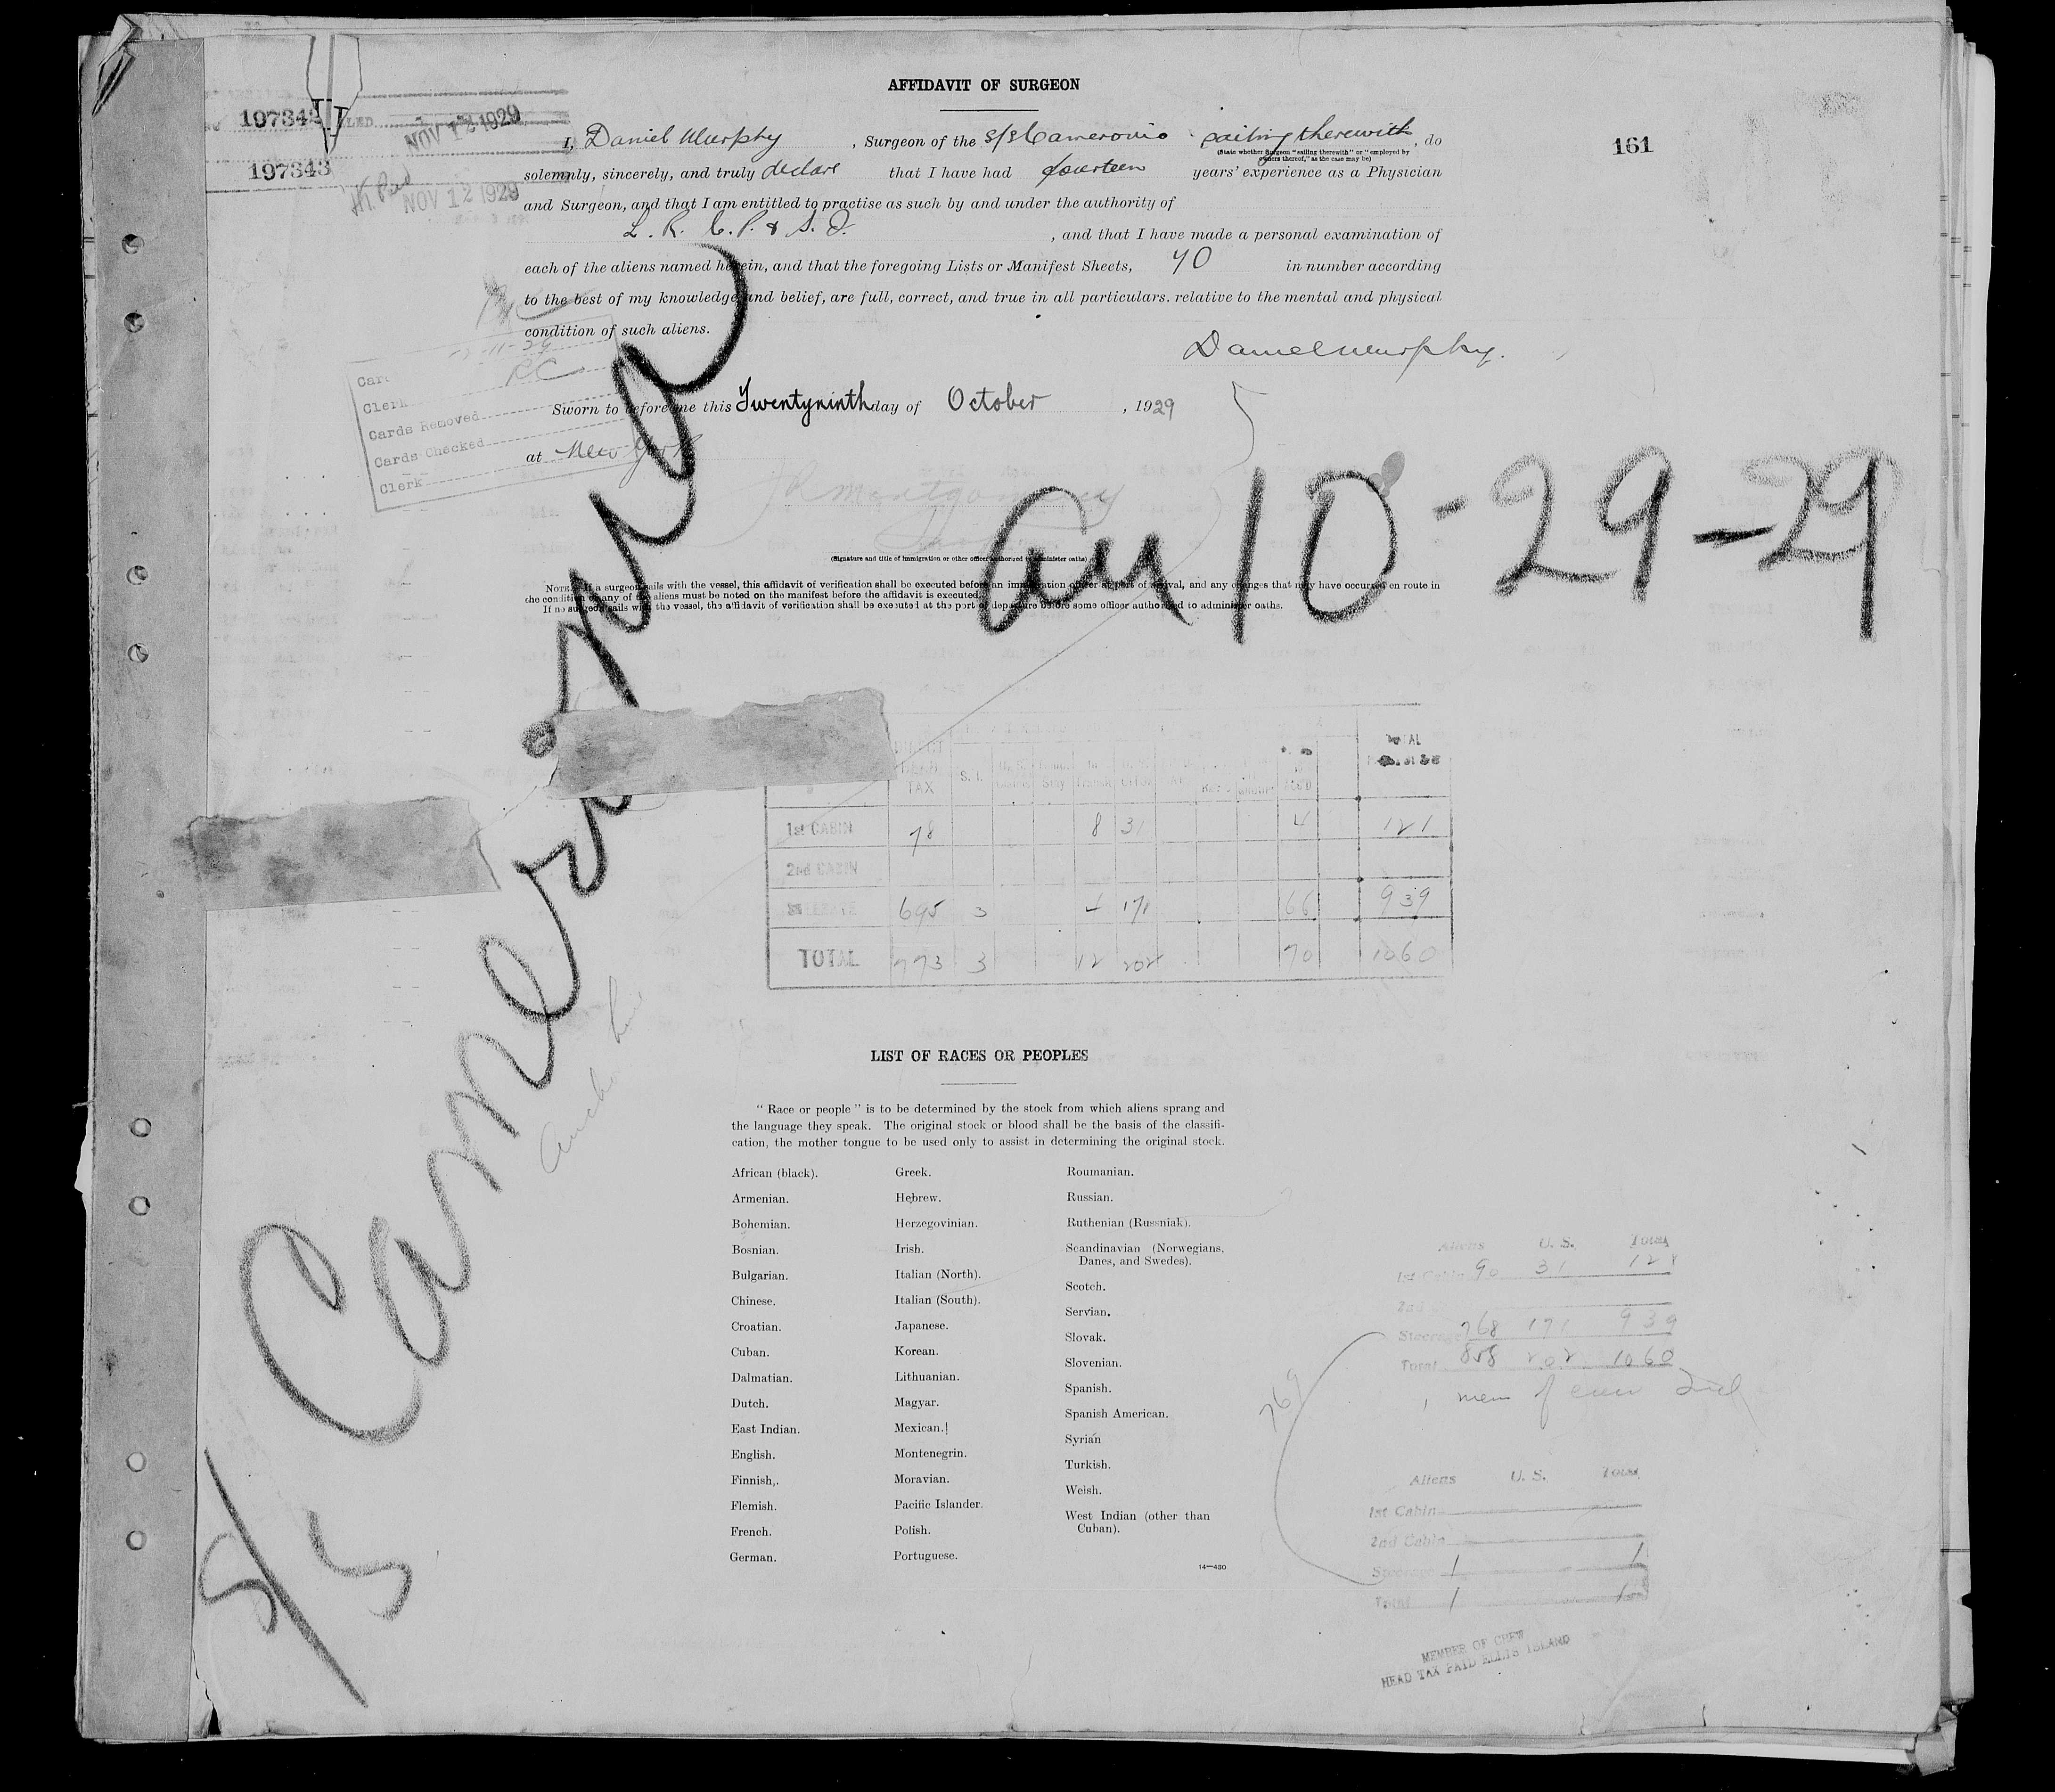 AFFIDAVIT OF SURGEON
107342 FILED NOV 12 1929
107343
NOV 12 1929
161
I, Daniel Murphy, Surgeon of the S/S Cameronia sailing therewith, do
(State whether Surgeon "sailing therewith" or "employed by
owners thereof," as the case may be)
solemnly, sincerely, and truly declare that I have had fourteen years' experience as a Physician
and Surgeon, and that I am entitled to practise as such by and under the authority of
L. R. C. P. & S. I. , and that I have made a personal examination of
each of the aliens named herein, and that the foregoing Lists or Manifest Sheets, 40 in number according
to the best of my knowledge and belief, are full, correct, and true in all particulars. relative to the mental and physical
condition of such aliens.
Daniel Murphy.
RC
Clerk
Cards Removed
Cards Checked
Clerk
Sworn to before me this Twentyninth day of October , 1929
at New York
Montgomery
(Signature and title of immigration or other officer authorized to administer oaths)
NOTE.—If a surgeon sails with the vessel, this affidavit of verification shall be executed before an immigration officer at port of arrival, and any changes that may have occurred en route in
the condition of any of the aliens must be noted on the manifest before the affidavit is executed.
If no surgeon sails with the vessel, the affidavit of verification shall be executed at the port of departure before some officer authorized to administer oaths.
10-29-29
S/S Cameronia
Anchor Line
TAX S. I. Stay TOTAL
1st CABIN 78 8 31 4 121
2nd CABIN
695 3 4 171 66 939
TOTAL 773 3 12 202 70 1060
LIST OF RACES OR PEOPLES
" Race or people " is to be determined by the stock from which aliens sprang and
the language they speak. The original stock or blood shall be the basis of the classifi-
cation, the mother tongue to be used only to assist in determining the original stock.
African (black).
Armenian.
Bohemian.
Bosnian.
Bulgarian.
Chinese.
Croatian.
Cuban.
Dalmatian.
Dutch.
East Indian.
English.
Finnish.
Flemish.
French.
German.
Greek.
Hebrew.
Herzegovinian.
Irish.
Italian (North).
Italian (South).
Japanese.
Korean.
Lithuanian.
Magyar.
Mexican.
Montenegrin.
Moravian.
Pacific Islander.
Polish.
Portuguese.
Roumanian.
Russian.
Ruthenian (Russniak).
Scandinavian (Norwegians,
Danes, and Swedes).
Scotch.
Servian.
Slovak.
Slovenian.
Spanish.
Spanish American.
Syrian
Turkish.
Welsh.
West Indian (other than
Cuban).
14—430
Aliens U. S. Total
1st Cabin 90 31
2nd
Steerage 768 171 939
Total 858 202 1060
1 mem of crew incl
769
Aliens U. S. Total
1st Cabin
2nd Cabin
Steerage 1 1
Total 1 1
MEMBER OF CREW
HEAD TAX PAID ELLIS ISLAND